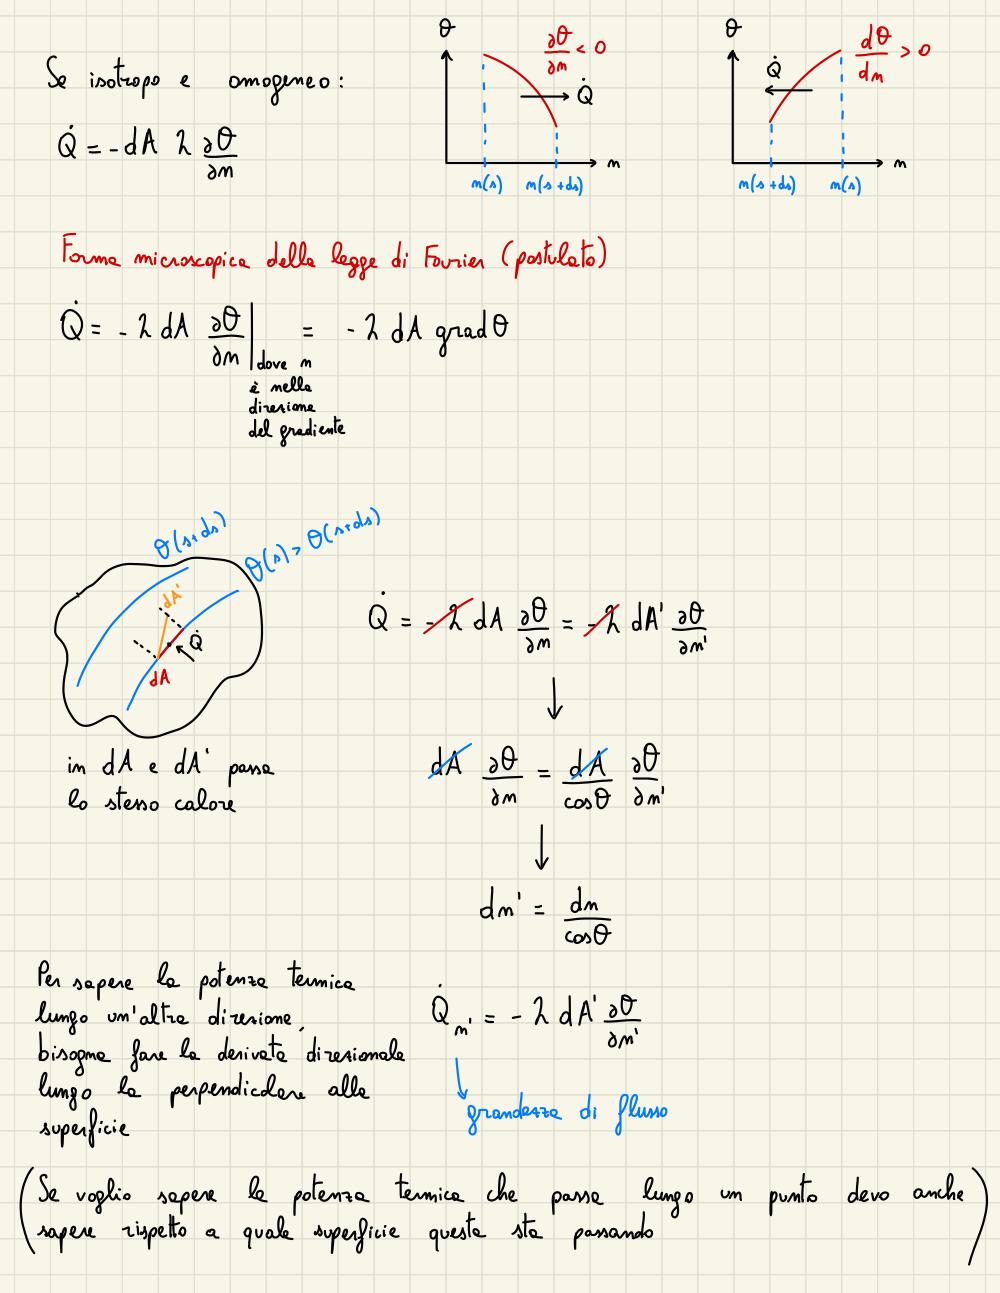 Se isotropo e omogeneo:
Q̇ = - dA λ ∂θ/∂n
θ
∂θ/∂n < 0
Q̇
n
n(s) n(s+ds)
θ
dθ/dn > 0
Q̇
n
n(s+ds) n(s)
Forma microscopica della legge di Fourier (postulato)
Q̇ = - λ dA ∂θ/∂n | = - λ dA grad θ
dove n
è nella
direzione
del gradiente
θ(s+ds)
θ(s) > θ(s+ds)
dA'
Q̇
dA
in dA e dA' passa
lo stesso calore
Q̇ = - λ dA ∂θ/∂n = - λ dA' ∂θ/∂n'
dA ∂θ/∂n = dA/cosθ ∂θ/∂n'
dn' = dn/cosθ
Per sapere la potenza termica
lungo un'altra direzione,
bisogna fare la derivata direzionale
lungo la perpendicolare alla
superficie
Q̇n' = - λ dA' ∂θ/∂n'
grandezza di flusso
(Se voglio sapere la potenza termica che passa lungo un punto devo anche
sapere rispetto a quale superficie questa sta passando)